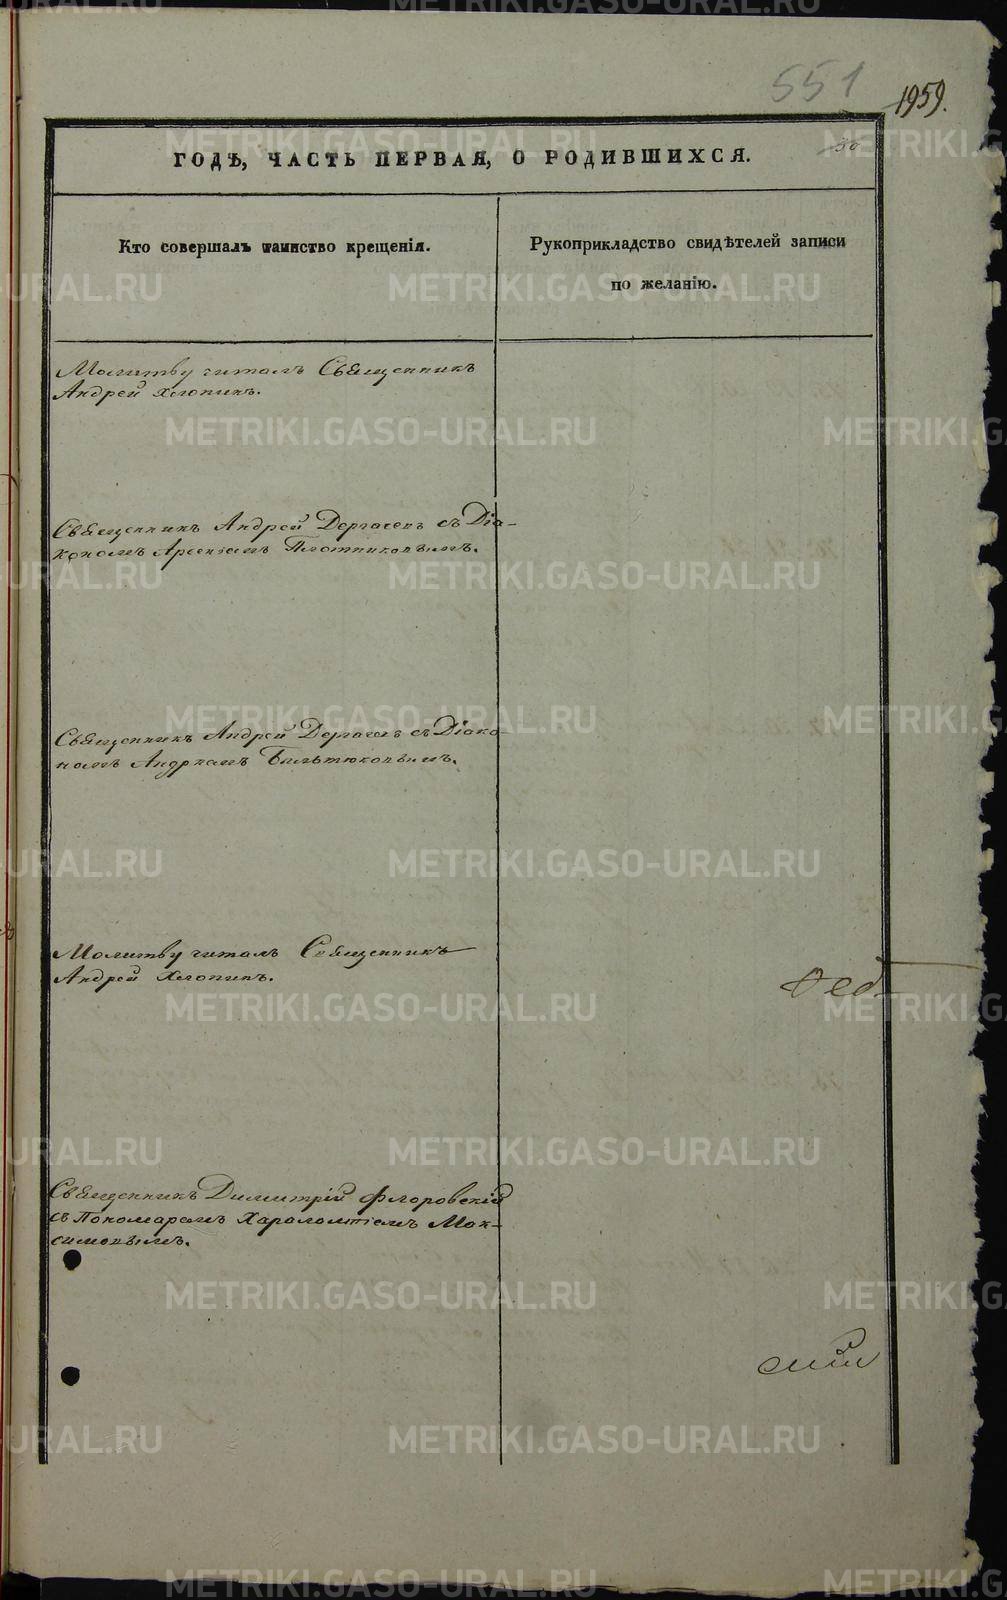 551
1959.
30
ГОДѢ, ЧАСТЬ ПЕРВАЯ, О РОДИВШИХСЯ.
Кто совершалъ таинство крещенія.
Рукоприкладство свидѣтелей записи
по желанію.
Молитву читалъ Священникъ
Андрей Хлопинъ.
Священникъ Андрей Дергачевъ съ Діа-
кономъ Арсеніемъ Плотниковымъ.
Священникъ Андрей Дергачевъ съ Діако-
номъ Андреемъ Бильтюковымъ.
Молитву читалъ Священникъ
Андрей Хлопинъ.
Священникъ Димитрій Флоровскій
съ Пономаремъ Харалампіемъ Мак-
симовымъ.
METRIKI.GASO-URAL.RU